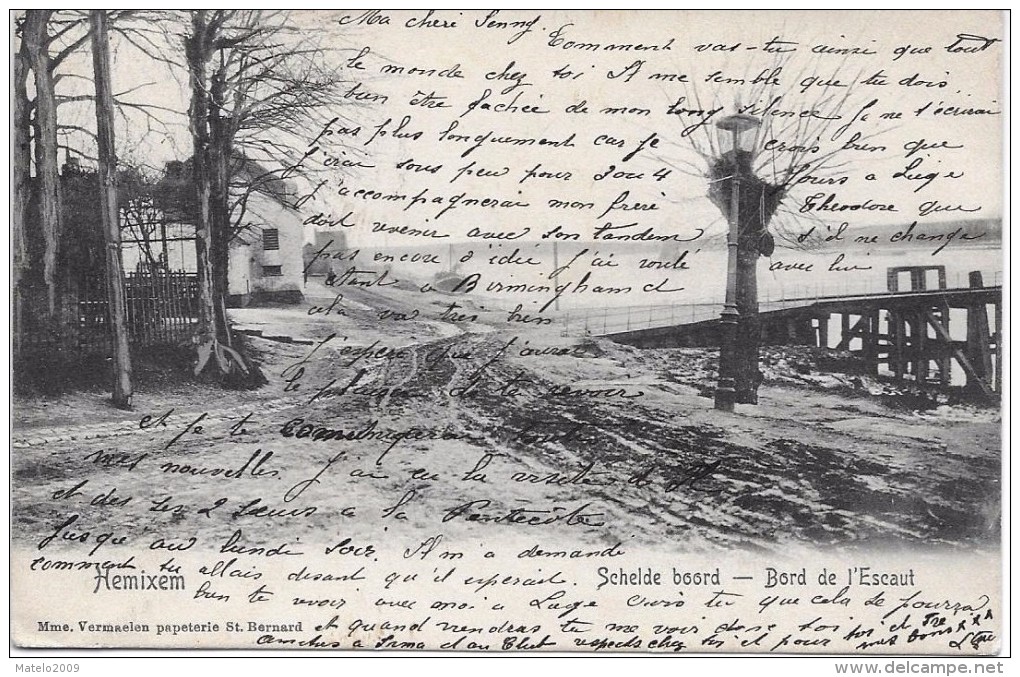 Ma cheri Jenny.
Comment vas-tu ainsi que tout
le monde chez toi Il me semble que tu dois
bien être fachée de mon long silence Je ne t'écrirai
pas plus longuement car je crois bien que
j'irai sous peu pour 3 ou 4 jours a Liège
J'accompagnerai mon frère Theodore que
doit revenir avec son tandem s'il ne change
pas encore d'idée j'ai roulé avec lui
etant a Birmingham et
cela va tres bien
J'espère que j'aurai
le plaisir de te revoir
et je te comuniquerai toute
mes nouvelles. J'ai eu la visite d
et des ses 2 sœurs a la Pentecôte
Jusque au lundi soir. Il m'a demandé
comment tu allais disant qu'il esperait
Hemixem
Schelde boord — Bord de l'Escaut
bien te revoir avec moi a Liège Crois tu que cela se pourra
Mme. Vermaelen papeterie St. Bernard
et quand viendras tu me voir chez toi et
amitiés a Irma et au Club respects chez toi et pour toi mes bons xxx
Matelo2009
www.delcampe.net